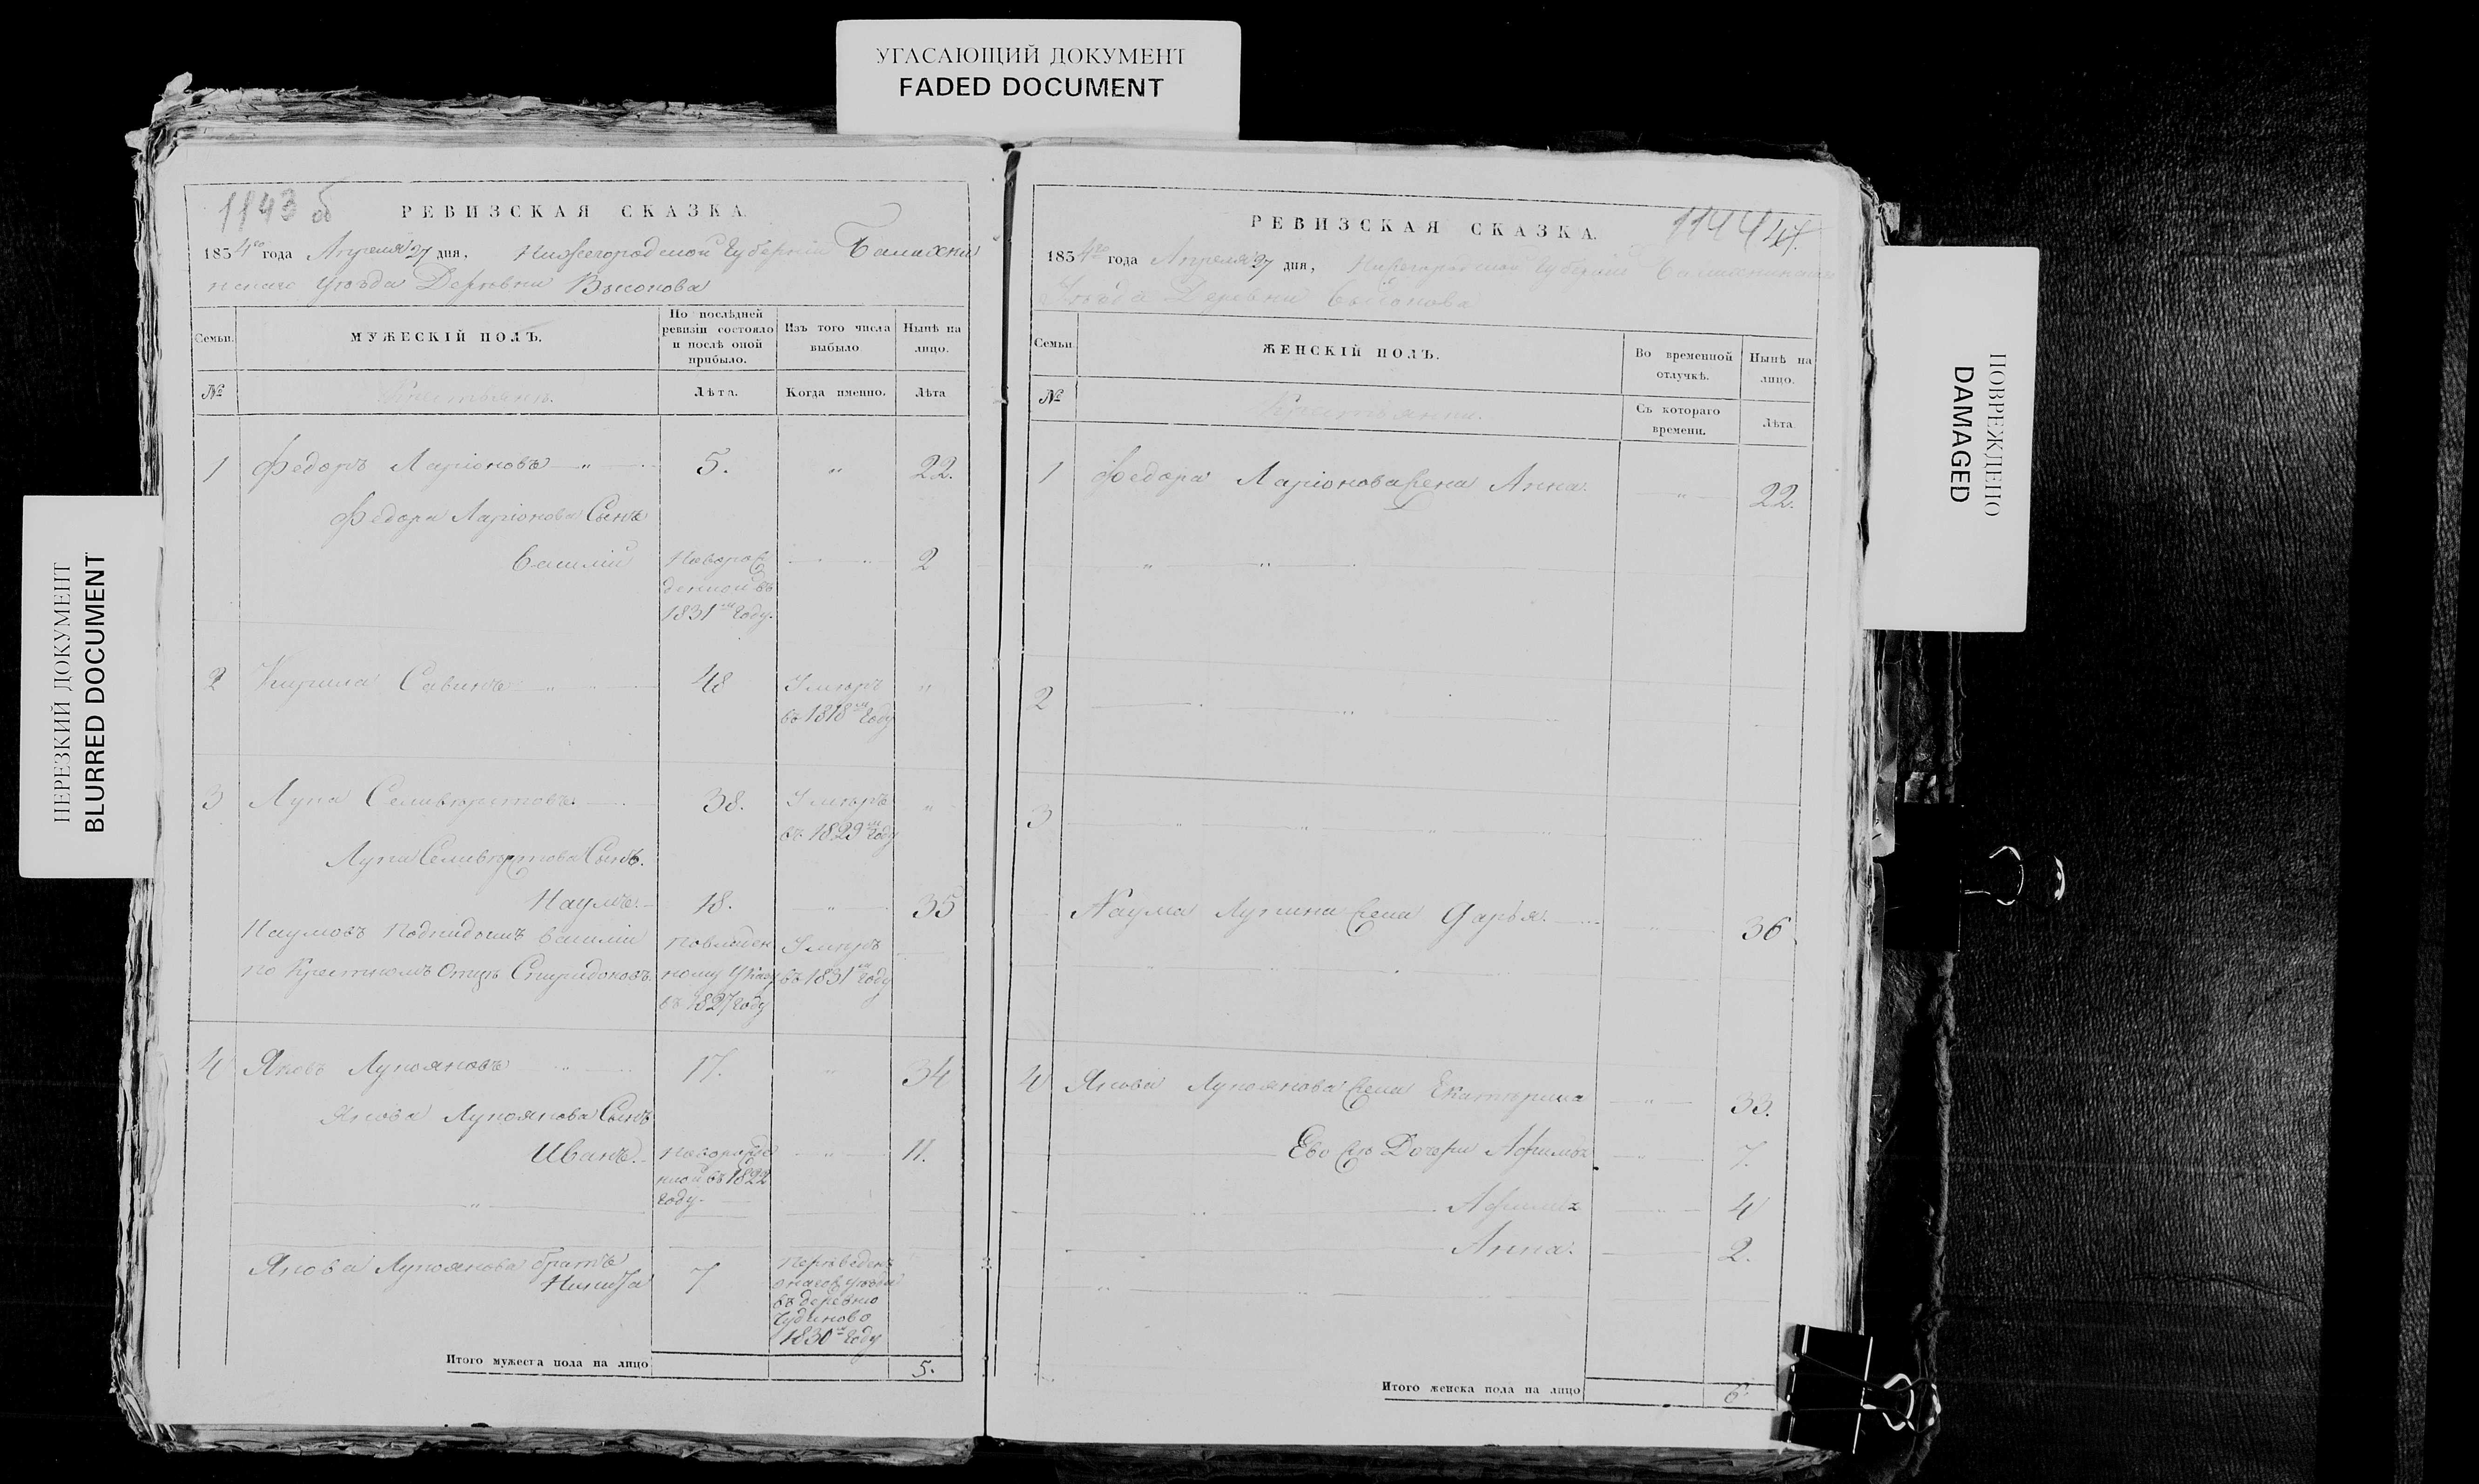 УГАСАЮЩИЙ ДОКУМЕНТ
FADED DOCUMENT
НЕРЕЗКИЙ ДОКУМЕНТ
BLURRED DOCUMENT
1143 об
РЕВИЗСКАЯ СКАЗКА.
1834го года Апреля 27 дня, Нижегородской Губернии Балахни
нскаго Уѣзда Деревни Высокова
Семьи.
МУЖЕСКІЙ ПОЛЪ.
По послѣдней ревизіи состояло и послѣ оной прибыло.
Изъ того числа выбыло.
Нынѣ на лицо.
№
Крестьяне.
Лѣта.
Когда именно.
Лѣта
1 Федоръ Ларіоновъ 5. " 22.
Федора Ларіонова Сынъ
Василій Новорож 2
денной въ
1831мъ Году.
2 Кирила Савинъ 48 Умеръ "
въ 1818мъ Году
3 Лупа Селиверстовъ. 38. Умеръ "
въ 1829мъ Году
Лупа Селиверстова Сынъ.
Наумъ. 18. " 35
Наумовъ василіи Умеръ
по Крестномъ Отцѣ Спиридоновъ. ному Указу въ 1831мъ Году
въ 1827 Году
4 Яковъ Лукояновъ 17. " 34
Якова Лукоянова Сынъ
Иванъ. Новорожде " 11.
нной въ 1822
Году.
"
Якова Лукоянова братъ
Никита 7 переведенъ
въ деревню
Чудиново
1830мъ Году
Итого мужеска пола на лицо 5.
РЕВИЗСКАЯ СКАЗКА.
1144
1834го года Апреля 27 дня, Нижегородской Губерніи Балахнинскаго
Уѣзда Деревни Высокова
Семьи.
ЖЕНСКІЙ ПОЛЪ.
Во временной отлучкѣ.
Нынѣ на лицо.
№
Крестьянки.
Съ котораго времени.
Лѣта.
1 Федора Ларіонова Жена Анна. " 22.
" "
2 "
3 " " " "
Наума Лупина Жена Дарья. " 36
4 Якова Лукоянова Жена Екатерина " 33.
Ево Же Дочери " 7.
" " 4
Анна. 2.
" " "
Итого женска пола на лицо 6.
ПОВРЕЖДЕНО
DAMAGED